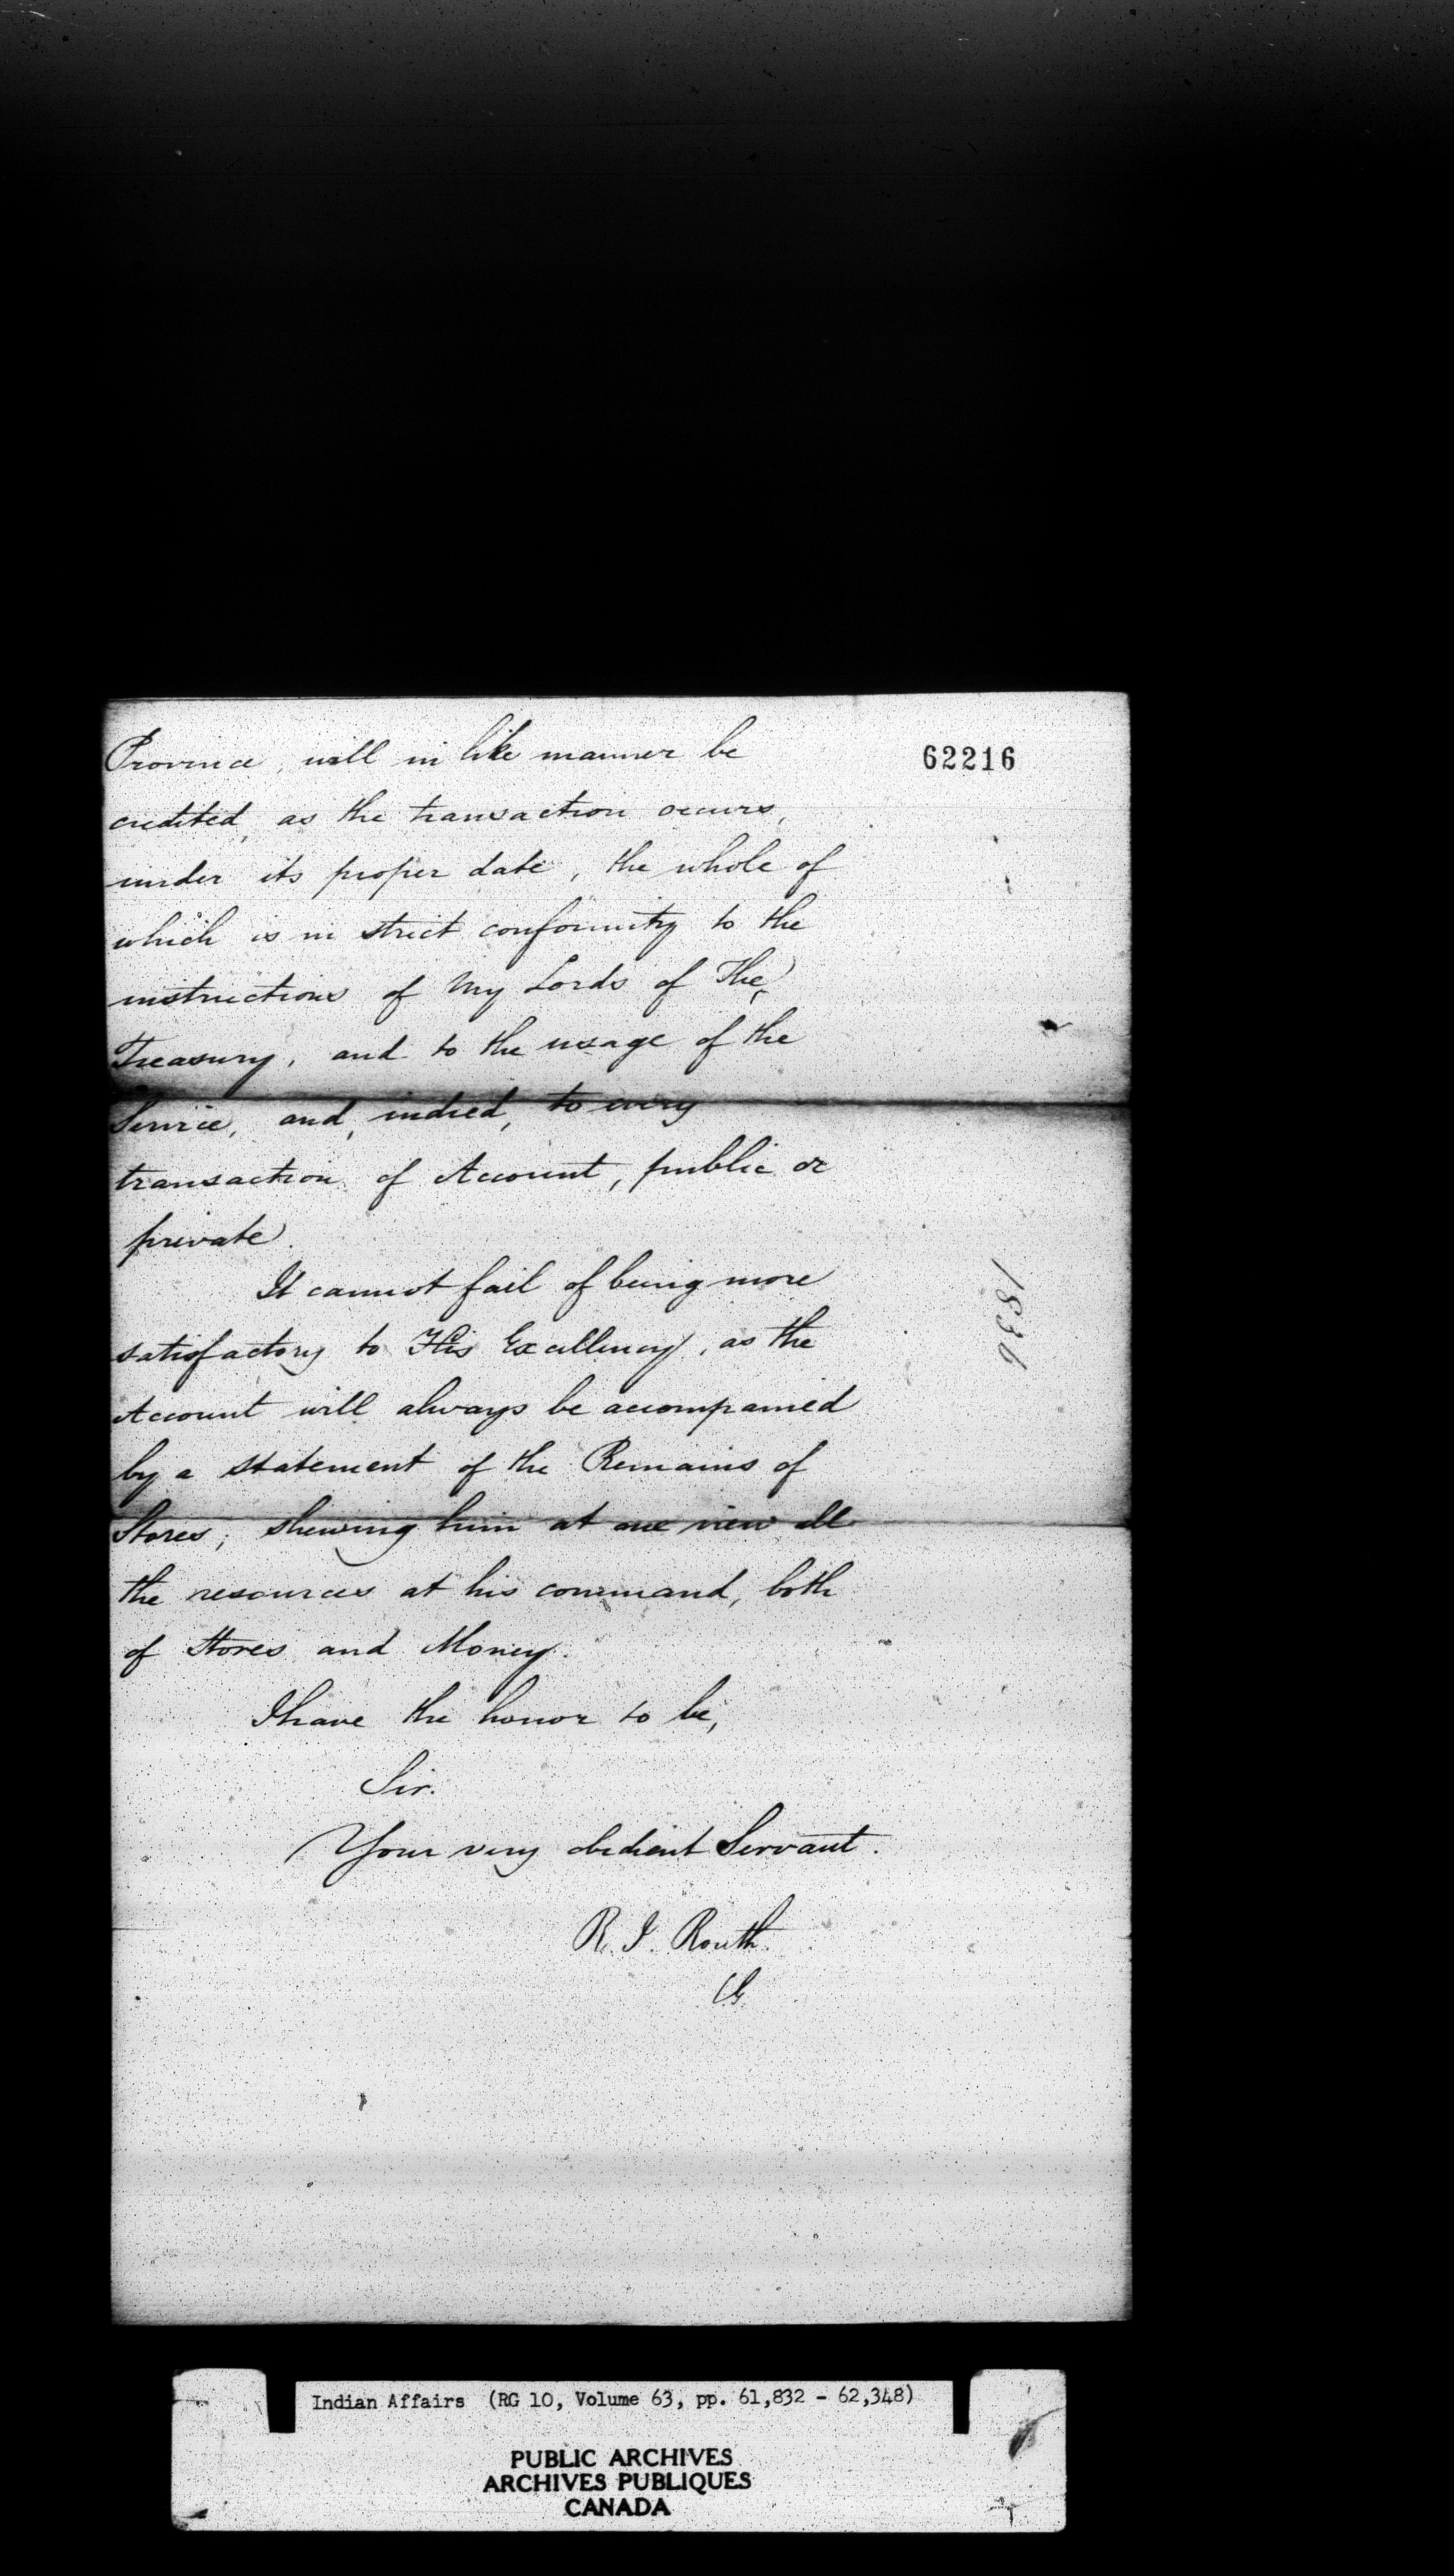 62216
Province, will in like manner be
credited, as the transaction occurs,
under its proper date, the whole of
which is in strict conformity to the
instructions of My Lords of The
Treasury, and to the usage of the
Service, and, indeed, to every
transaction of Account, public or
private.
It cannot fail of being more
satisfactory to His Excellency, as the
Account will always be accompanied
by a statement of the Remains of
Stores; shewing him at one view all
the resources at his command, both
of Stores and Money.
I have the honor to be,
Sir.
Your very obedient Servant.
R. I. Routh.
CG
1836
Indian Affairs (RG 10, Volume 63, pp. 61,832 - 62,348)
PUBLIC ARCHIVES
ARCHIVES PUBLIQUES
CANADA